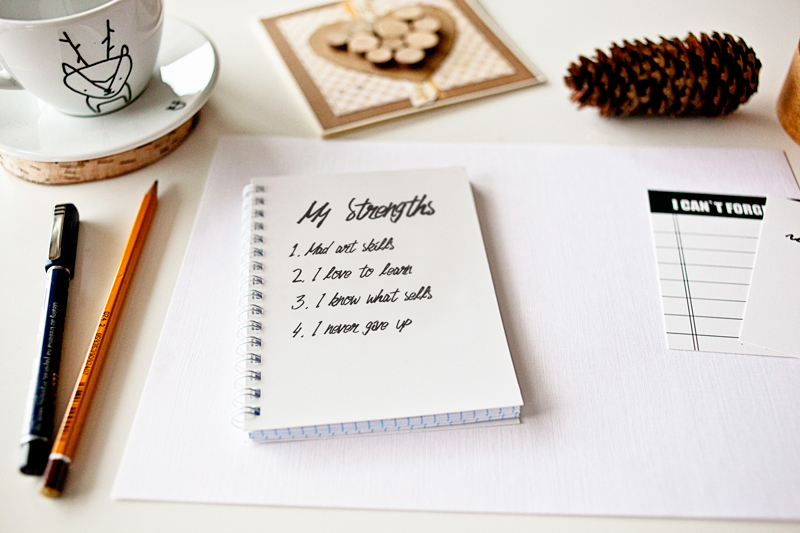 My Strengths
1. Mad art skills
2. I love to learn
3. I know what sells
4. I never gave up
I CAN'T FORG